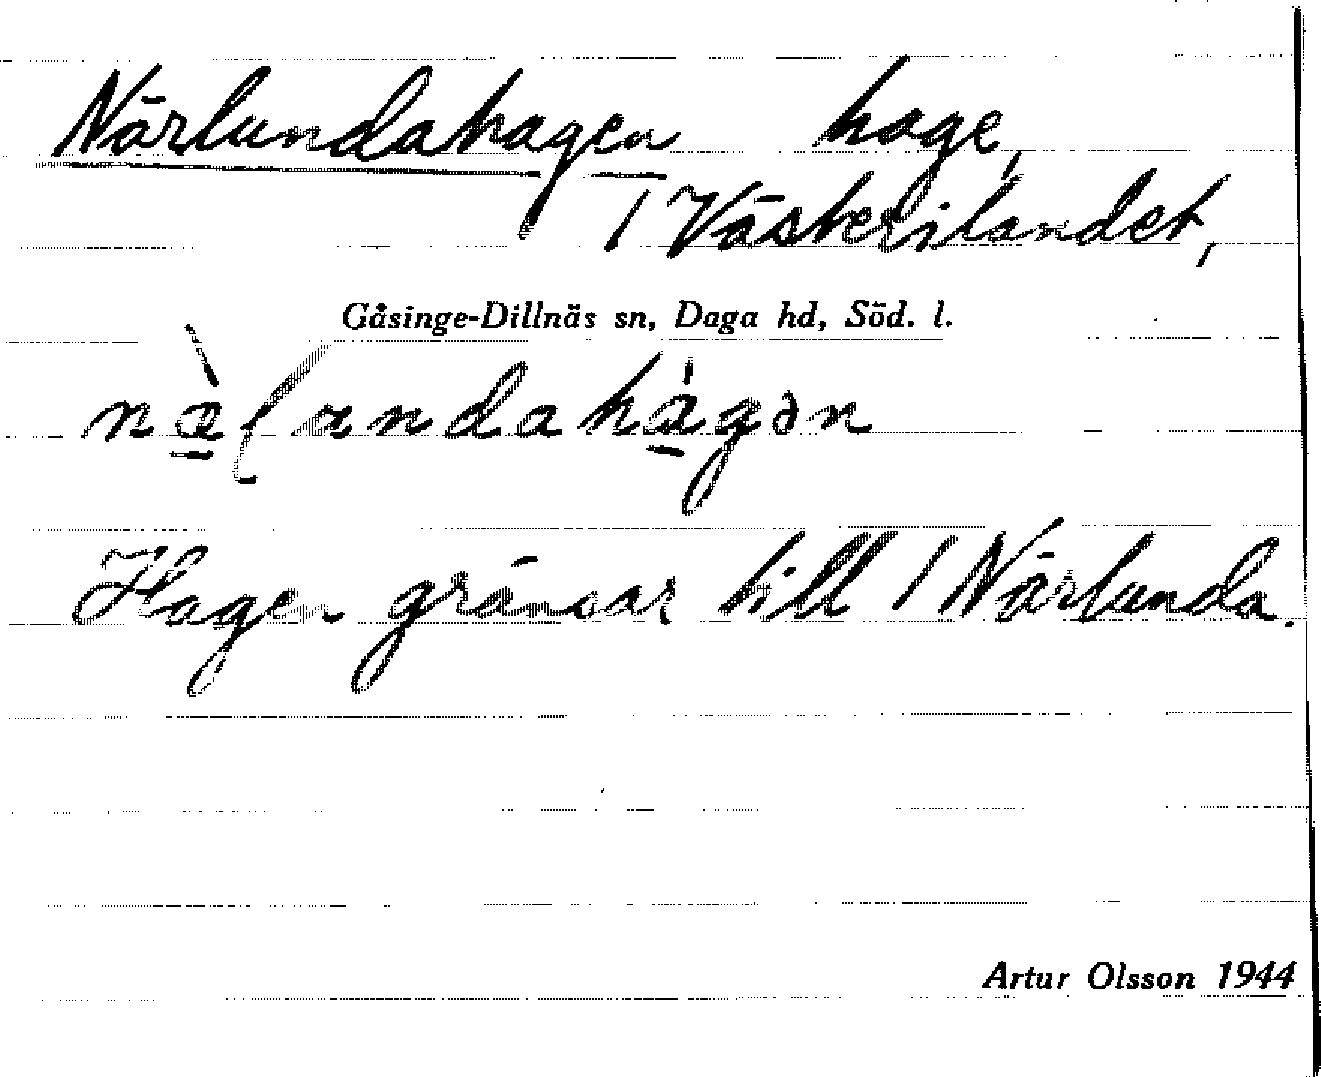 Närlundahagen hage,
/ Västerilandet,
Gåsinge-Dillnäs sn, Daga hd, Söd. l.
Hagen gränsar till / Närlunda.
Artur Olsson 1944